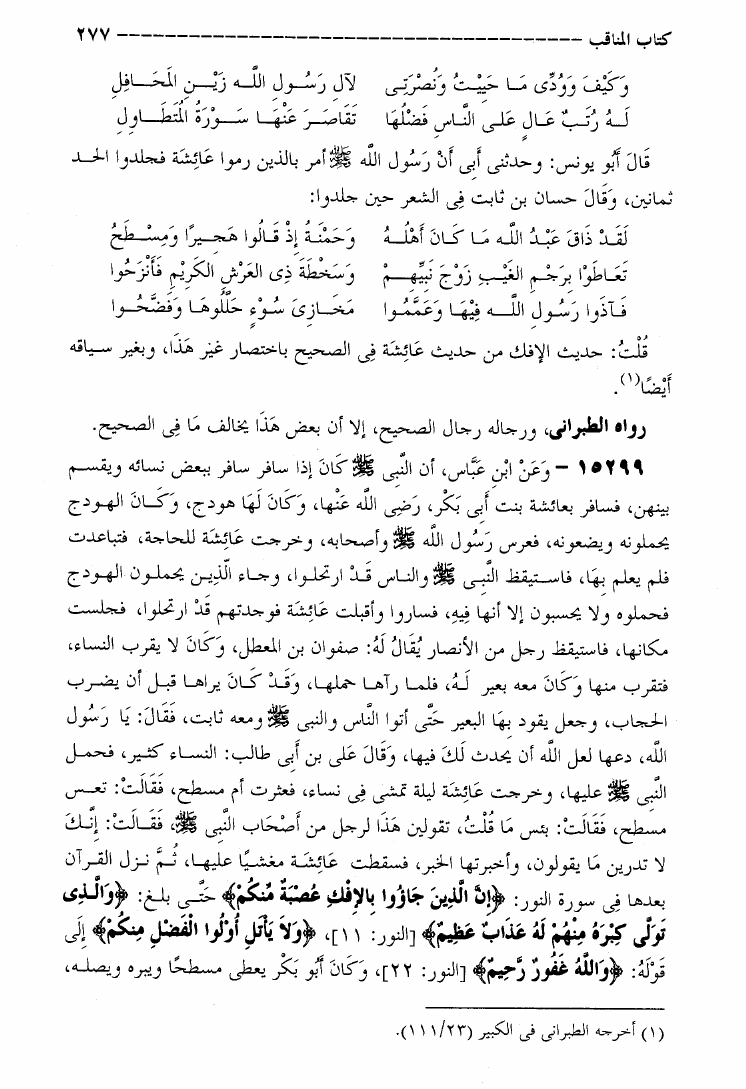 كتاب المناقب ------------------------------------------ ٢٧٧
وَكَيْفَ وَوُدِّى مَا حَيِيْتُ وَنُصْرَتِى لآلِ رَسُولِ اللَّه زَيْنِ المَحَافِلِ
لَهُ رُتَبٌ عَالٍ عَلى النَّاسِ فَضْلُهَا تَقَاصَرَ عَنْهَا سَوْرَةُ المُتَطَاوِلِ
قَالَ أَبُو يونس: وحدثنى أَبى أَنْ رَسُول اللَّه ﷺ أمر بالذين رموا عَائِشَة فجلدوا الحد
ثمانين، وَقَالَ حسان بن ثابت فِى الشعر حين جلدوا:
لَقَدْ ذَاقَ عَبْدُ اللَّه مَا كَانَ أَهْلُهُ وَحَمْنَةُ إِذْ قَالُوا هَجِيرًا وَمِسْطَحُ
تَعَاطَوْا بِرَجْمِ الغَيْبِ زَوْجَ نَبِيِّهِمْ وَسَخْطَةَ ذِى العَرْشِ الكَرِيْمِ فَأَنْزَحُوا
فَآذَوا رَسُولَ اللَّه فِيْهَا وَعَمَّمُوا مَخَازِىَ سُوْءٍ حَلَّلُوهَا وَفَضَّحُوا
قُلْتُ: حديث الإفك من حديث عَائِشَة فِى الصحيح باختصار غيْر هَذَا، وبغير سياقه
أَيْضًا(١).
رواه الطبرانى، ورجاله رجال الصحيح، إلا أن بعض هَذَا يخالف مَا فِى الصحيح.
١٥٢٩٩ – وَعَنْ ابْنِ عَبَّاس، أن النَّبى ﷺ كَانَ إذا سافر سافر ببعض نسائه ويقسم
بينهن، فسافر بعائشة بنت أَبى بَكْر، رَضِى اللَّه عَنْها، وَكَانَ لَهَا هودج، وَكَانَ الهودج
يحملونه ويضعونه، فعرس رَسُول اللَّه ﷺ وأصحابه، وخرجت عَائِشَة للحاجة، فتباعدت
فلم يعلم بِهَا، فاستيقظ النَّبى ﷺ والناس قَدْ ارتحلوا، وجاء الَّذِين يحملون الهودج
فحملوه ولا يحسبون إلا أنها فِيهِ، فساروا وأقبلت عَائِشَة فوجدتهم قَدْ ارتحلوا، فجلست
مكانها، فاستيقظ رجل من الأنصار يُقَالُ لَهُ: صفوان بن المعطل، وَكَانَ لا يقرب النساء،
فتقرب منها وَكَانَ معه بعير لَهُ، فلما رآها حملها، وَقَدْ كَانَ يراها قبل أن يضرب
الحجاب، وجعل يقود بِهَا البعير حَتَّى أتوا النَّاس والنبى ﷺ ومعه ثابت، فَقَالَ: يَا رَسُول
اللَّه، دعها لعل اللَّه أن يحدث لَكَ فيها، وَقَالَ على بن أَبى طالب: النساء كثير، فحمل
النَّبى ﷺ عليها، وخرجت عَائِشَة ليلة تمشى فِى نساء، فعثرت أم مسطح، فَقَالَتْ: تعس
مسطح، فَقَالَتْ: بئس مَا قُلْتُ، تقولين هَذَا لرجل من أَصْحَاب النَّبى ﷺ، فَقَالَتْ: إنَّكَ
لا تدرين مَا يقولون، وأخبرتها الخبر، فسقطت عَائِشَة مغشيًا عليها، ثُمَّ نزل القرآن
بعدها فِى سورة النور: ﴿إِنَّ الَّذِينَ جَاؤُوا بِالإِفْكِ عُصْبَةٌ مِّنكُمْ﴾ حَتَّى بلغ: ﴿وَالَّذِى
تَوَلَّى كِبْرَهُ مِنْهُمْ لَهُ عَذَابٌ عَظِيمٌ﴾ [النور: ١١]، ﴿وَلَا يَأْتَلِ أُوْلُوا الْفَضْلِ مِنكُمْ﴾ إِلَى
قَوْلَهُ: ﴿وَاللَّهُ غَفُورٌ رَّحِيمٌ﴾ [النور: ٢٢]، وَكَانَ أَبُو بَكْر يعطى مسطحًا ويبره ويصله،
(١) أخرجه الطبرانى فى الكبير (١١١/٢٣).